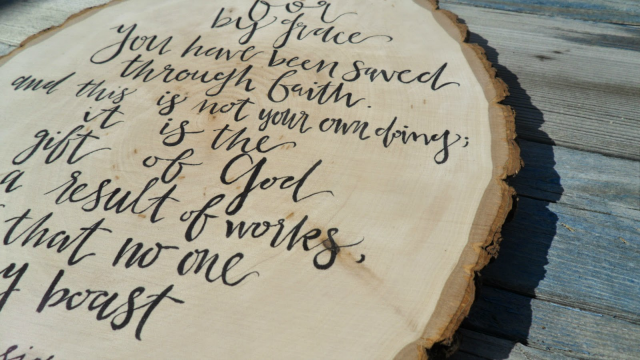 For
by grace
you have been saved
through faith.
and this is not your own doing;
it is the
gift of God
a result of works,
that no one
boast